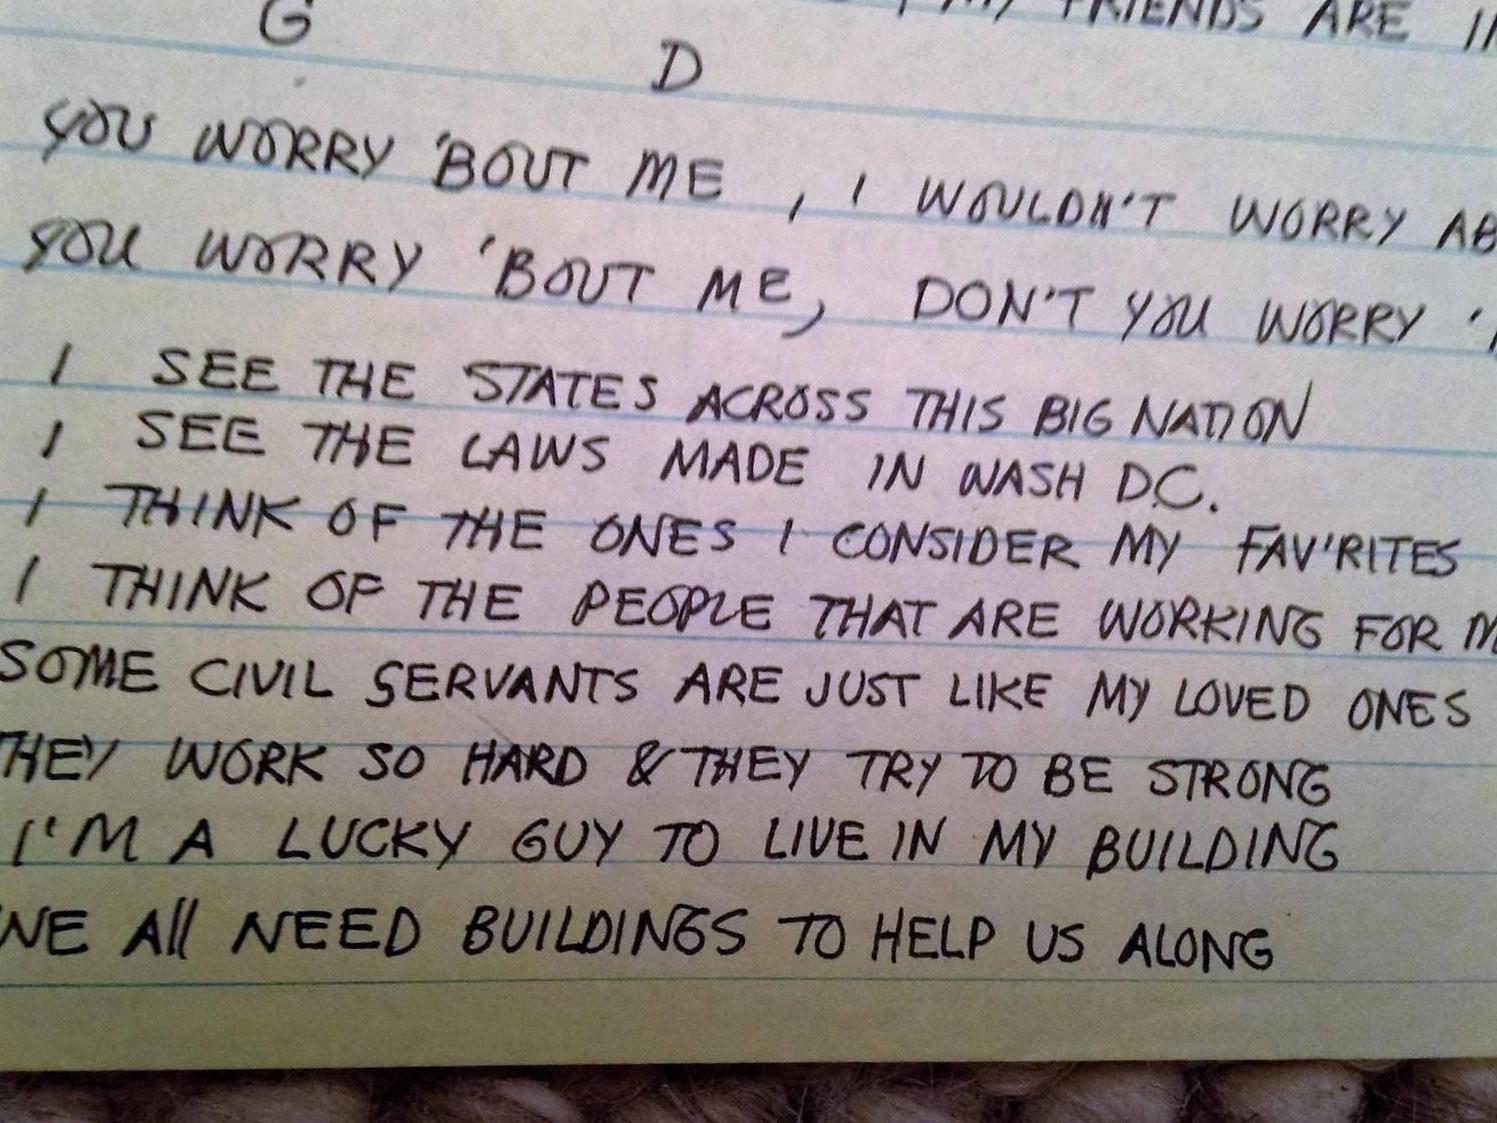 FRIENDS ARE
G D
YOU WORRY 'BOUT ME, I WOULDN'T WORRY AB
YOU WORRY 'BOUT ME, DON'T YOU WORRY '
I SEE THE STATES ACROSS THIS BIG NATION
I SEE THE LAWS MADE IN WASH D.C.
I THINK OF THE ONES I CONSIDER MY FAV'RITES
I THINK OF THE PEOPLE THAT ARE WORKING FOR M
SOME CIVIL SERVANTS ARE JUST LIKE MY LOVED ONES
THEY WORK SO HARD & THEY TRY TO BE STRONG
I'M A LUCKY GUY TO LIVE IN MY BUILDING
WE All NEED BUILDINGS TO HELP US ALONG